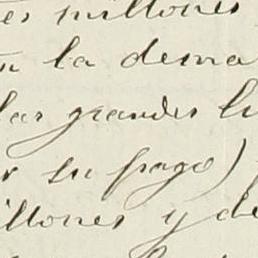 es millones
n la dema
las grandes lu
r su pago)
illones y de